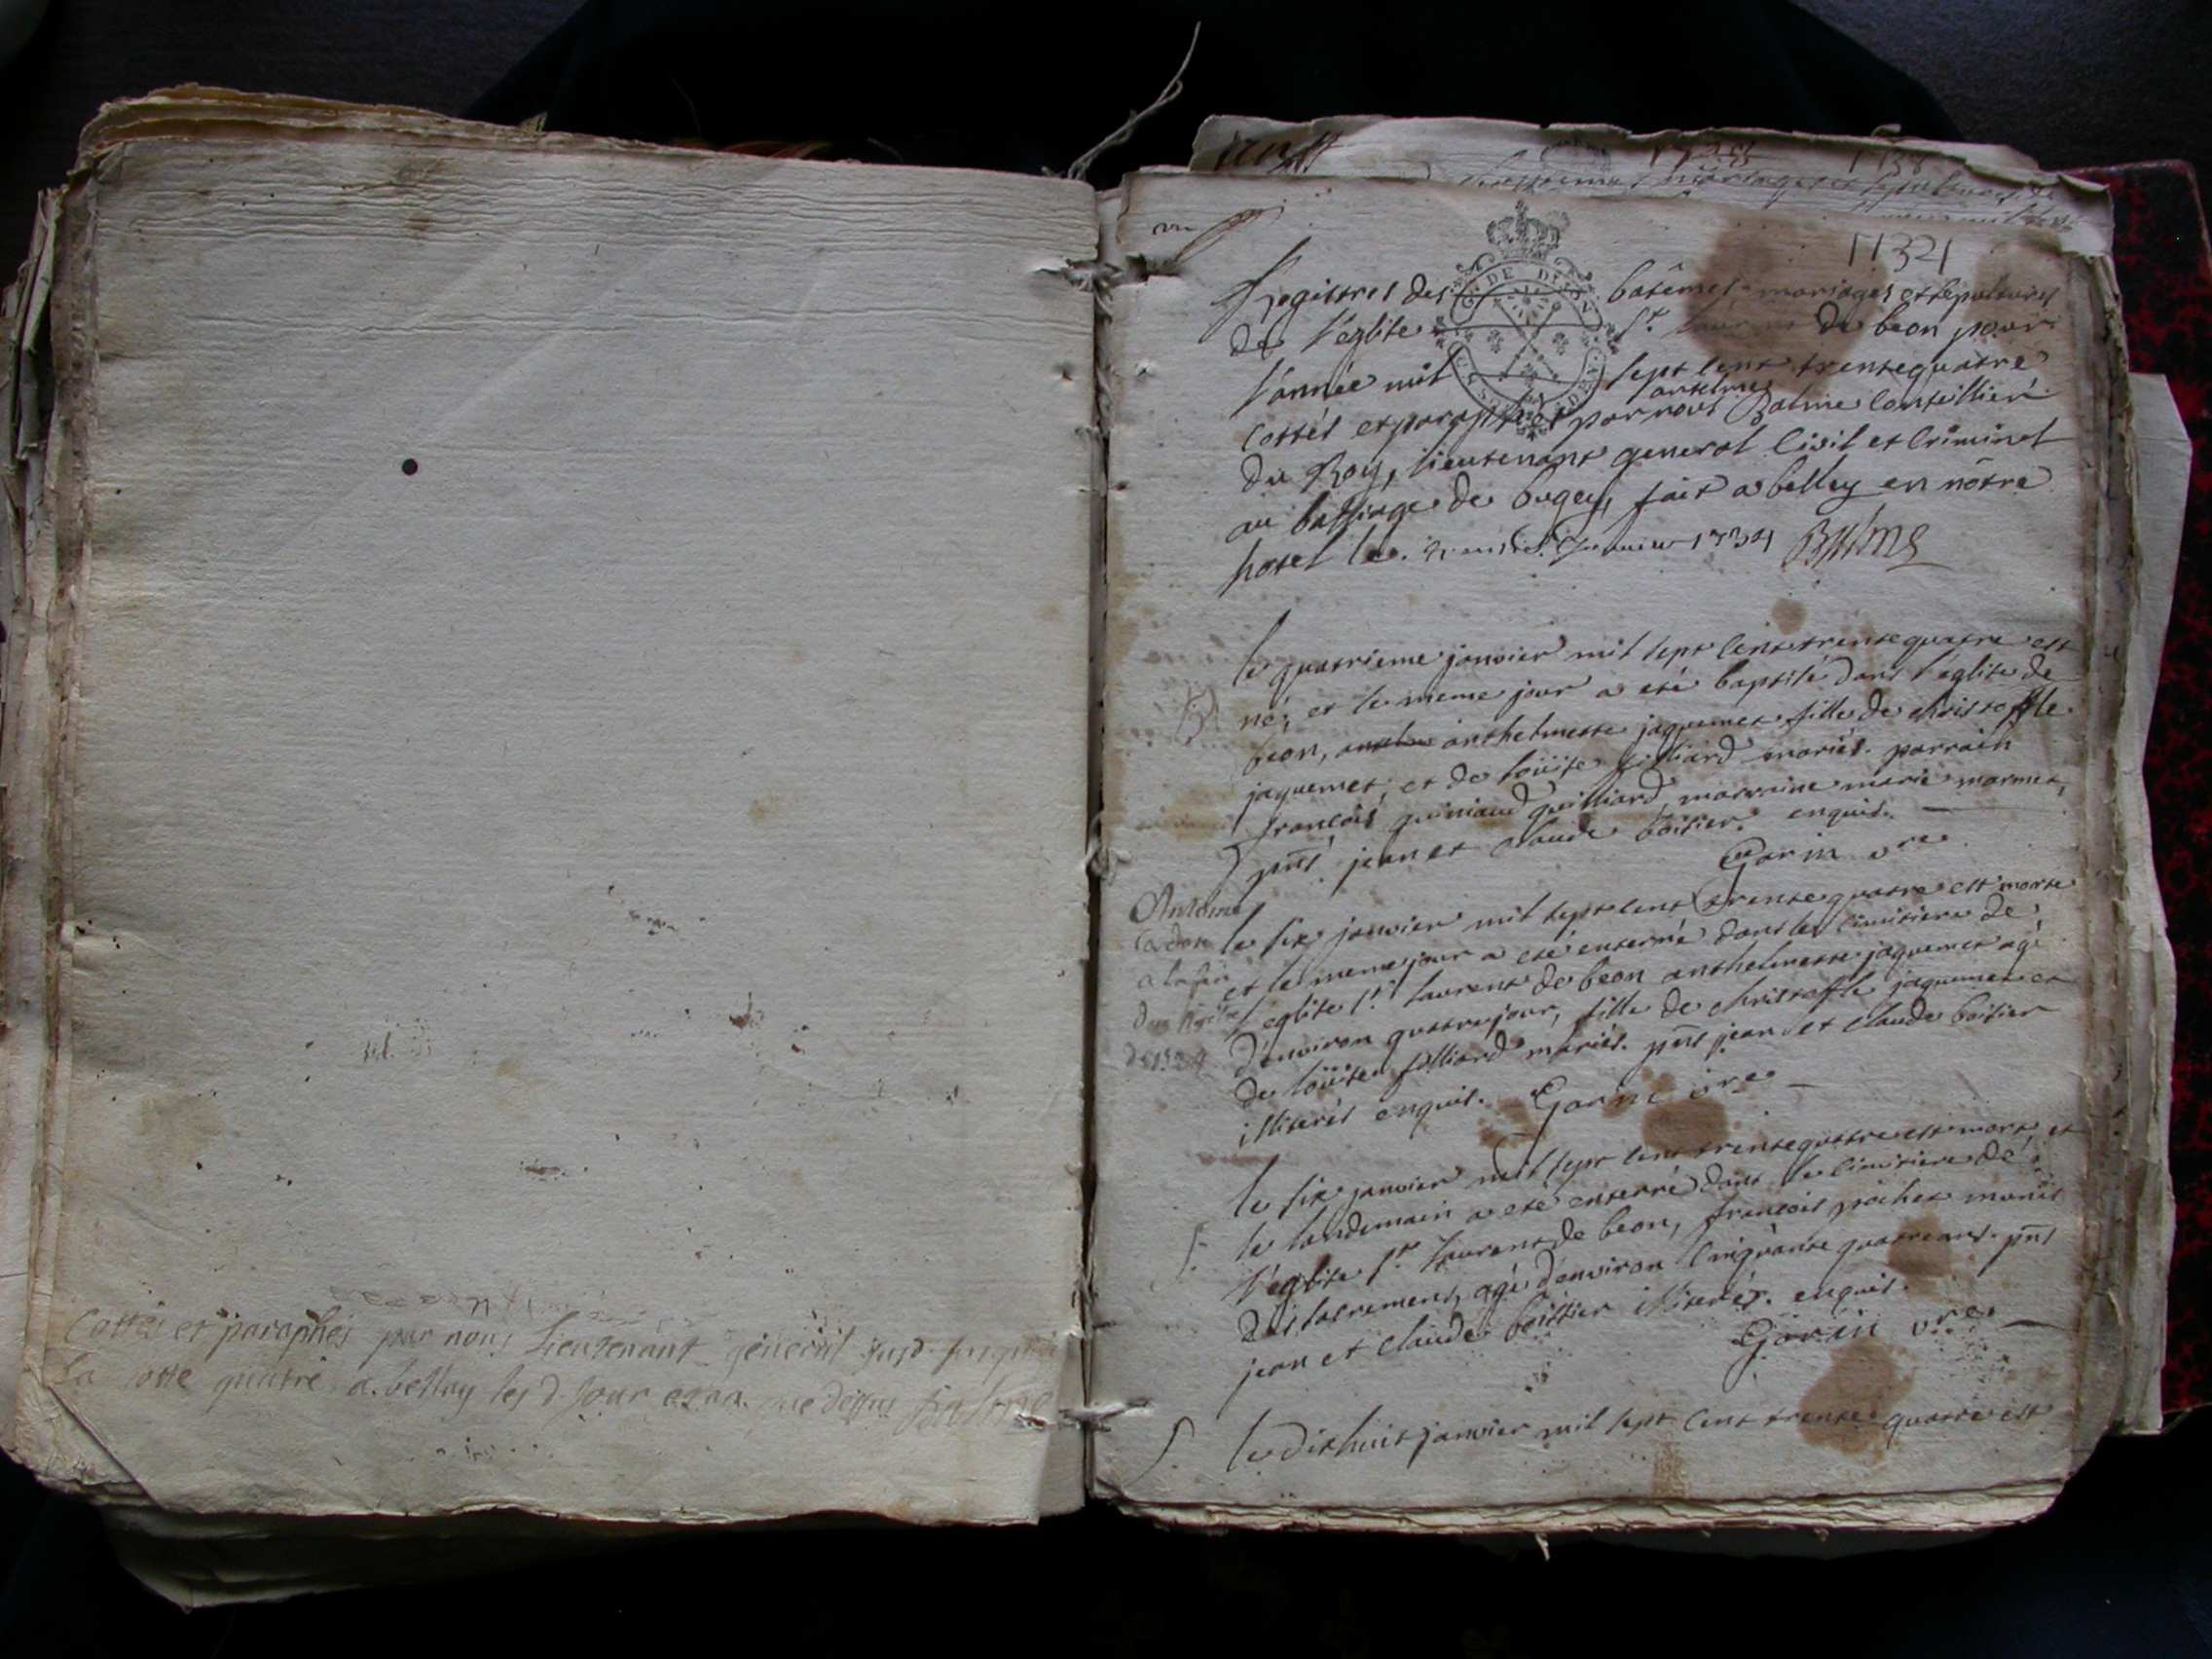 Cottés et paraphés par nous Lieutenant général jusqu'a
la cotte quatre a bellay les d. jour et an que dessus Balme
un
1734
Registres des batêmes mariages et sepultures
de l'eglise St. laurens de beon pour
l'année mil sept cent trente quatre
cottés et paraphés par nous anselme Balme Conseillier
du Roy, lieutenant general Civil et Criminel
au balliage de bugey, fait a belley en nôtre
hotel le janvier 1734 Balme
DE DIJON
le quatrieme janvier mil sept cent trente quatre est
B né, et le meme jour a eté baptisé dans l'eglise de
beon, anthelmette jaquemet fille de christoffle
jaquemet, et de loüise filliard mariés. parrain
francois guilliard, marraine marie marmet,
pñs jean et claude boitier. enquis.
Gorin vre
Antoine
Cadot
a la fin
du registre
de 1734
le six janvier mil sept cent trente quatre est morte
et le meme jour a eté enterré dans le cimitiere de
l'eglise St. laurent de beon anthelmette jaquemet agé
d'environ quatre jour, fille de christoffle jaquemet et
de loüise filliard mariés. pñs jean et claude boitier
illiterés enquis. Gorin vre
le six janvier mil sept cent trente quatre est mort et
le landemain a eté enterré dans le cimitiere de
S. l'eglise St. laurent de beon, francois pochet munis
des sacrement, agé d'environ cinquante quatre ans. pñs
jean et claude boittier illiterés. enquis.
Gorin vre
S. le dixhuit janvier mil sept cent trente quatre est